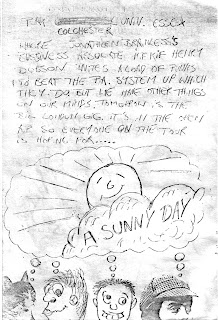 UNIV. ESSEX
COLCHESTER
WHERE JONATHAN
BUSINESS ASSOCIATE HENRY
INVITES A LOAD OF PUNKS
TO BEAT THE P.A. SYSTEM UP WHICH
THEY DO BUT WE HAVE OTHER THINGS
ON OUR MINDS, TOMORROW IS THE
BIG LONDON GIG. IT'S IN THE OPEN
AIR SO EVERYONE ON THE TOUR
IS HOPING FOR.....
A SUNNY DAY